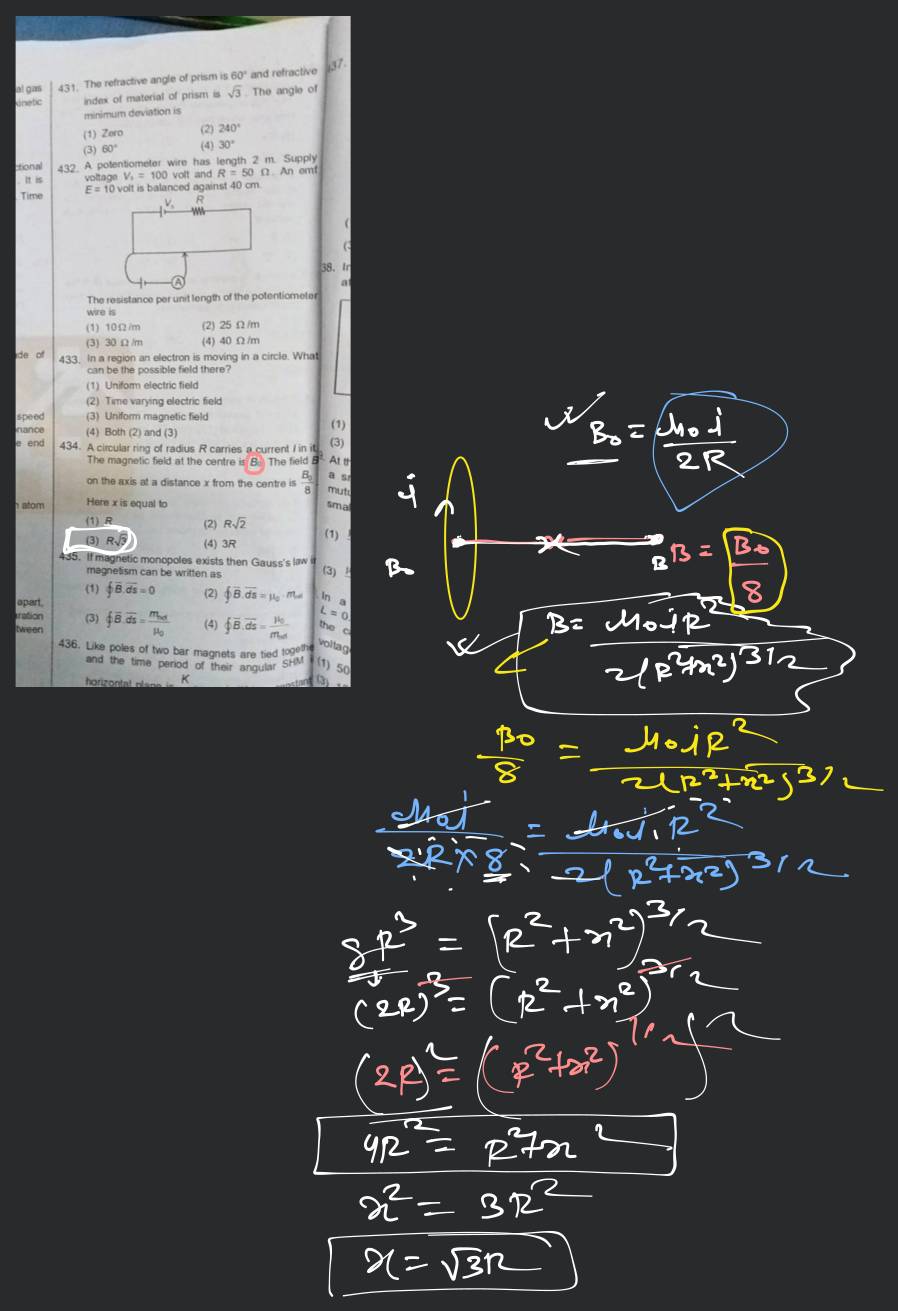 al gas
kinetic
ctional
. It is
Time
de of
speed
nance
e end
n atom
apart,
aration
tween
431. The refractive angle of prism is 60° and refractive
index of material of prism is √3. The angle of
minimum deviation is
(1) Zero (2) 240°
(3) 60° (4) 30°
432. A potentiometer wire has length 2 m. Supply
voltage Vₛ = 100 volt and R = 50 Ω. An emf
E = 10 volt is balanced against 40 cm.
Vₛ R
A
The resistance per unit length of the potentiometer
wire is
(1) 10Ω/m (2) 25 Ω/m
(3) 30 Ω/m (4) 40 Ω/m
433. In a region an electron is moving in a circle. What
can be the possible field there?
(1) Uniform electric field
(2) Time varying electric field
(3) Uniform magnetic field
(4) Both (2) and (3)
434. A circular ring of radius R carries a current I in it.
The magnetic field at the centre is B₀. The field B
on the axis at a distance x from the centre is B₀/8
Here x is equal to
(1) R (2) R√2
(3) R√3 (4) 3R
435. If magnetic monopoles exists then Gauss's law in
magnetism can be written as
(1) ∮B̄.ds̄ = 0 (2) ∮B̄.ds̄ = μ₀ · m_net
(3) ∮B̄.ds̄ = m_net/μ₀ (4) ∮B̄.ds̄ = μ₀/m_net
436. Like poles of two bar magnets are tied togethe
and the time period of their angular SHM i
horizontal plane is K
437.
38. In
at
(1)
(3)
At th
a s
mutu
smal
(1)
(3)
In a
L = 0.
the c
voltag
(1) 50
(3)
B₀ = μ₀i/2R
i
B₀
B
B = B₀/8
B = μ₀iR²/2(R²+x²)^3/2
B₀/8 = μ₀iR²/2(R²+x²)^3/2
μ₀i/2R×8 = μ₀iR²/2(R²+x²)^3/2
8R³ = (R²+x²)^3/2
(2R)³ = (R²+x²)^3/2
(2R)² = ((R²+x²)^1/2)²
4R² = R²+x²
x² = 3R²
x = √3R